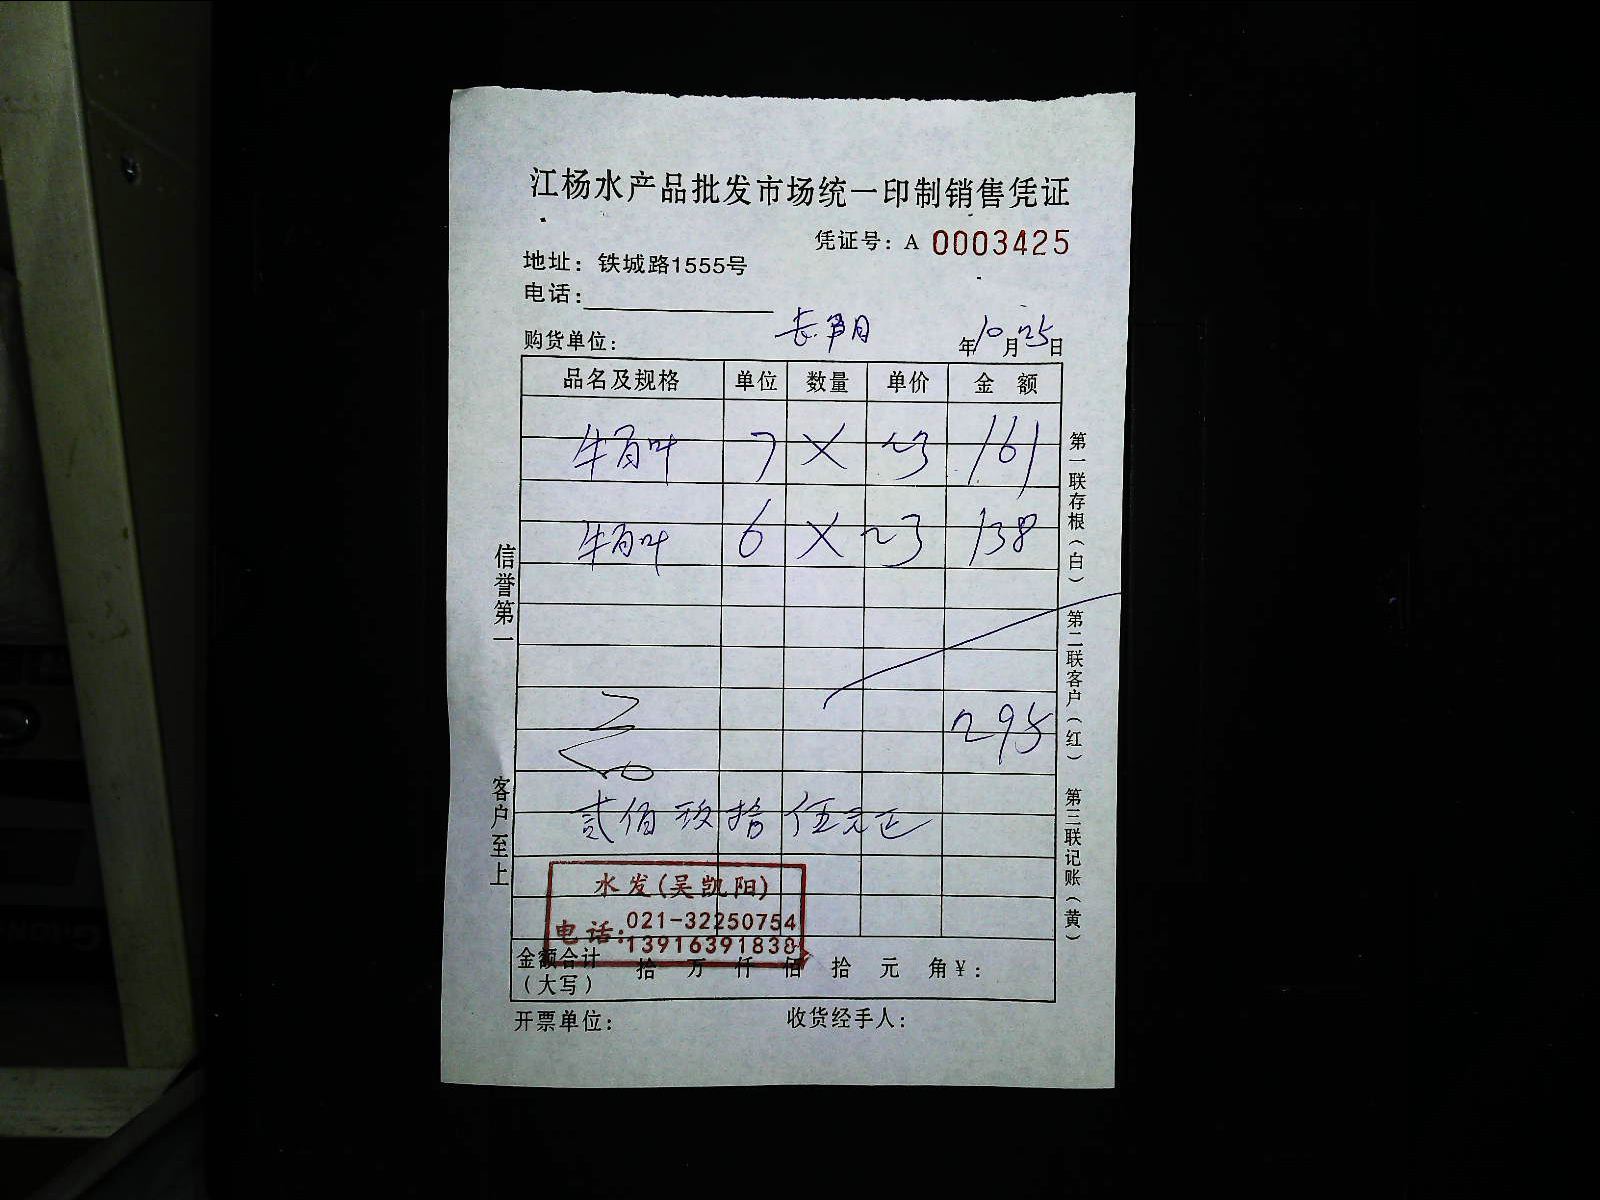 江杨水产品批发市场统一印制销售凭证
凭证号：A 0003425
地址：铁城路1555号
电话：
购货单位： 年10月25日
品名及规格 单位 数量 单价 金 额
牛百叶 7 X 23 161
牛百叶 6 X 23 138
295
贰佰玖拾伍元正
水发(吴凯阳)
电话:021-32250754
13916391838
金额合计（大写） 拾 万 仟 佰 拾 元 角￥：
开票单位： 收货经手人：
信誉第一 客户至上
第一联存根（白） 第二联客户（红） 第三联记账（黄）